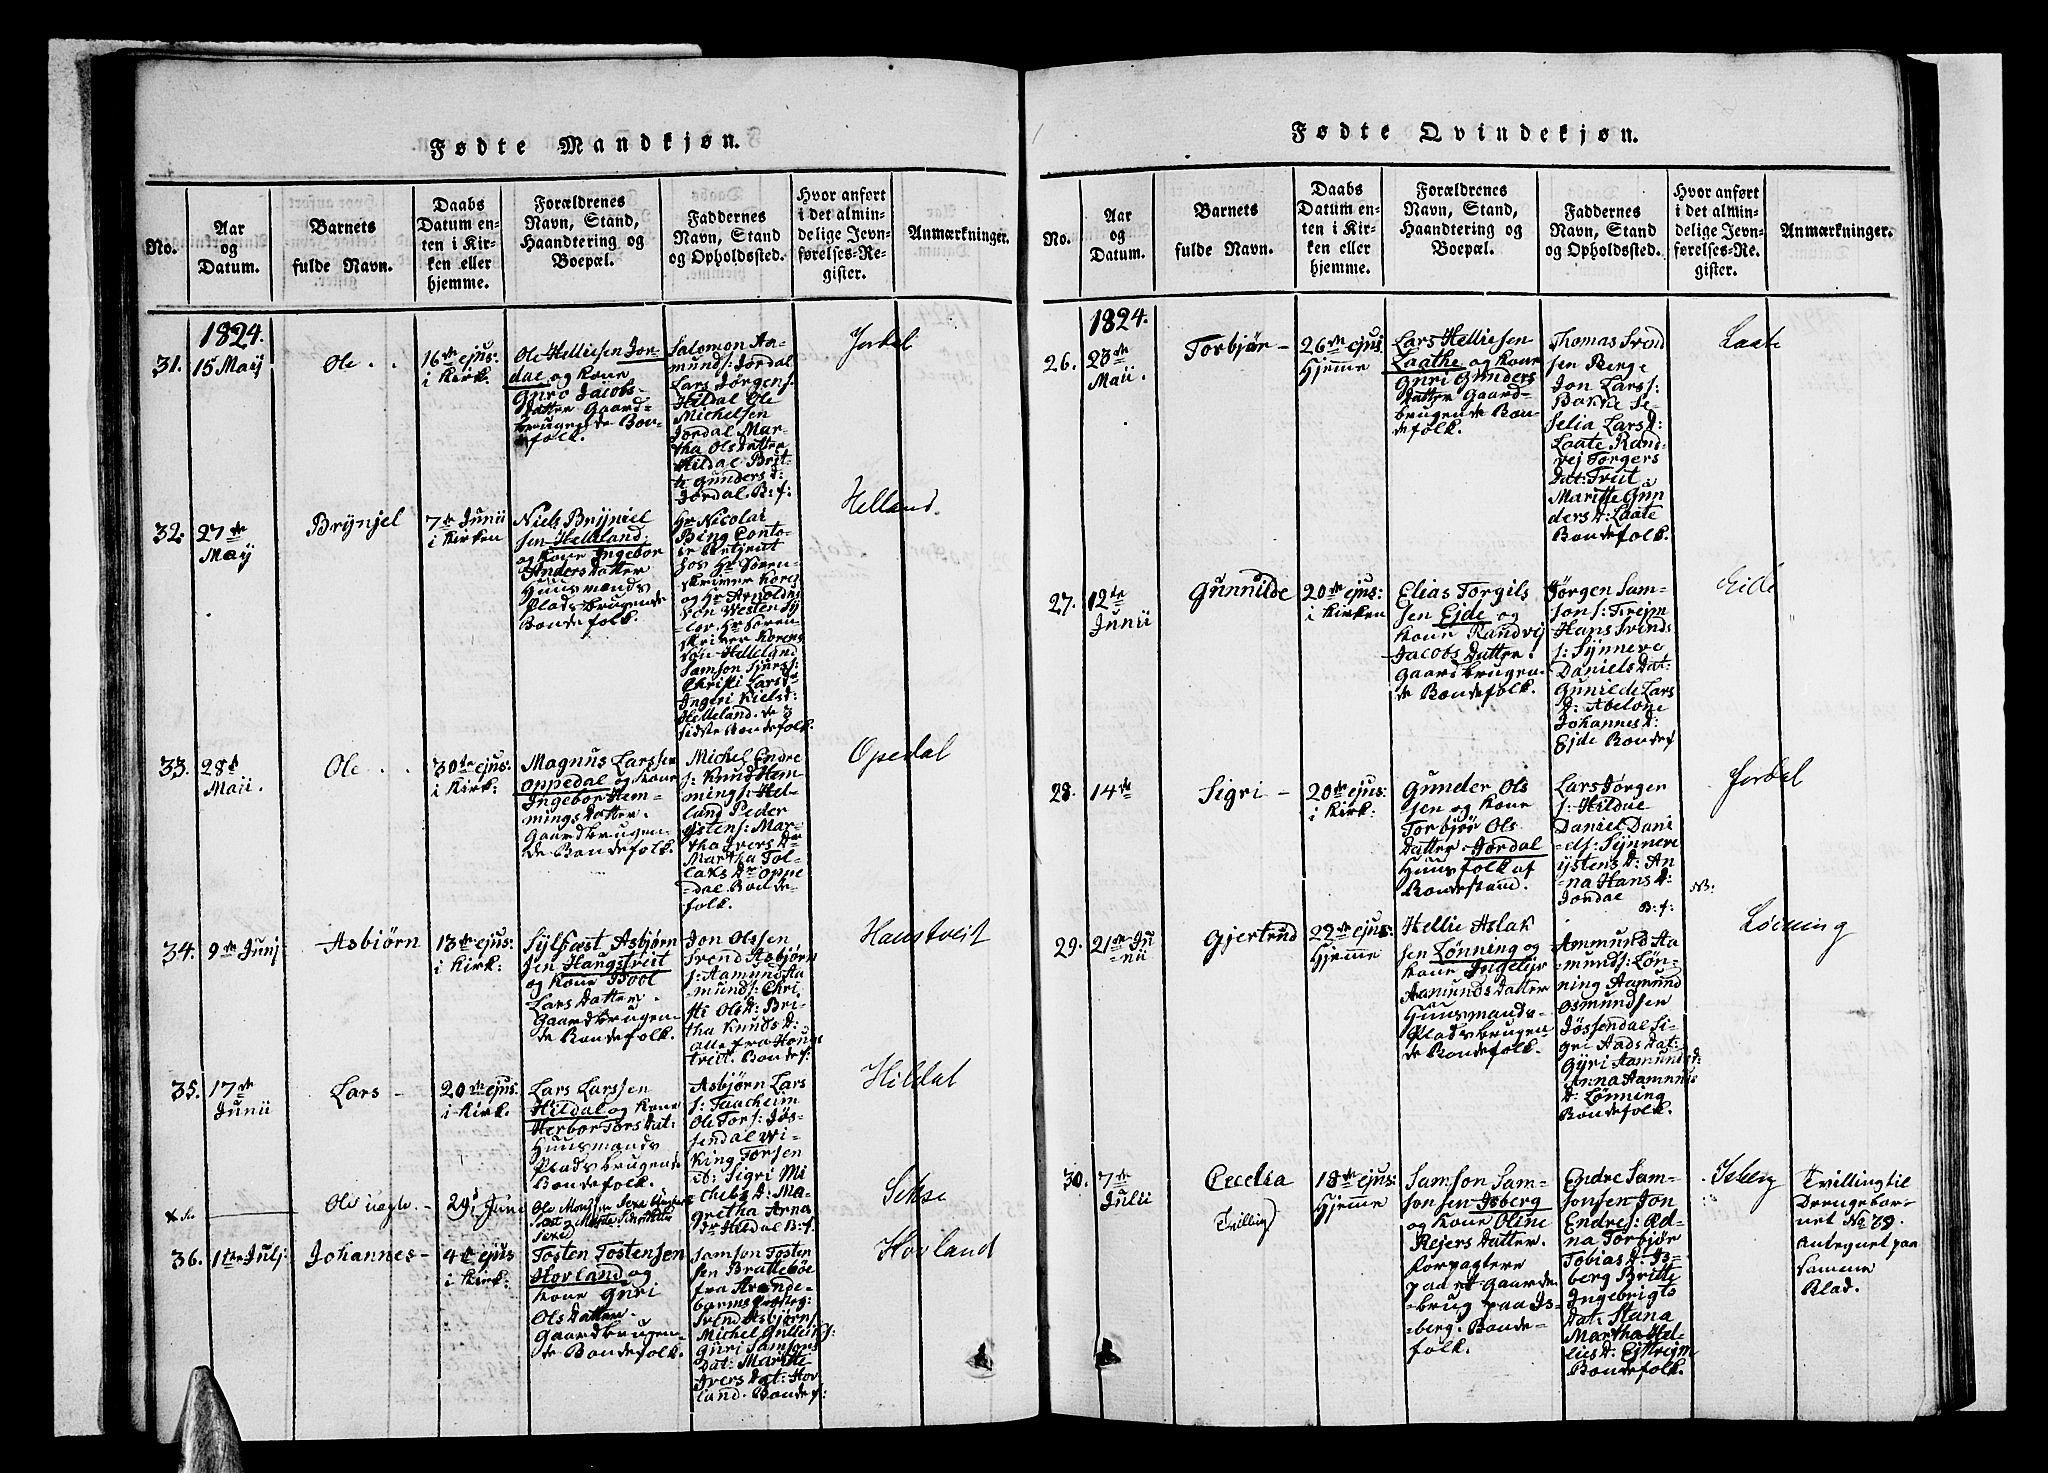 Fødte Mandkjøn.
No.
Aar
og
Datum.
Barnets
fulde Navn.
Daabs
Datum en-
ten i Kir-
ken eller
hjemme.
Forældrenes
Navn, Stand,
Haandtering og
Boepæl.
Faddernes
Navn, Stand
og Opholdssted.
Hvor anført
i det almin-
delige Jevn-
førelses-Re-
gister.
Anmærkninger.
1824.
31.
15 May
Ole
16de ejus:
i Kirk.
Ole Helliesen Jor-
dal og Kone
Guro Jacobs-
Datter Gaard-
brugende Bon-
defolk.
Salomon Aa-
munds: Jordal
Lars Jørgens:
Hildal Ole
Michelsen
Jordal Mar-
tha Ols Datter
Hildal Brit-
te Gunders d:
Jordal. B: f:
Jordal
32.
27de
May
Brynjel
7de Junii
i Kirken
Niels Brynjel
sen Helleland
og Kone Ingebor
Anders Datter
Huusmands
Plads brugende
Bondefolk.
Hr Nicolai
Bing Conto-
ir Betjent
hos Hr Soren-
skriver Koren
og Hr Arnoldus
von Westen Sy
Hr Soren-
skriver Korens
Søn Helleland
Samson Sjurs:
Christi Lars Dr
Ingeri Niels d:
Helleland. de 3
sidste Bondefolk.
Helland.
33.
28d
Maii.
Ole
30te ejus:
i Kirk:
Magnus Larssen
Oppedal og Kone
Ingebor Hem-
mings Datter.
Gaardbrugen-
de Bondefolk.
Michel Endre
s: Knud Hem-
mings: Hel-
land Peder
Østens: Mar-
tha Ivers Dr
Martha Tol-
laks Dr Oppe
-dal Bonde-
folk.
Opedal
34.
9de Junj
Asbiørn
13de ejus:
i Kirk:
Sylfæst Asbjørn
sen Haugstveit
og Kone Bool
Lars Datter.
Gaardbrugen-
de Bondefolk.
Jon Olssen
Svend Asbjørn
s: Aamund Aa
munds: Chri
sti Ols D: Bri-
tha Knuds D:
alle fra Houge
tveit. Bondef:
Haustveit
35.
17de
Junii
Lars
20de ejus.
i Kirk.
Lars Larssen
Hildal og Kone
Herbor Tors Dat:
Huusmands
Plads brugende
Bondefolk.
Asbjørn Lars
s: Taacheim
Ole Tors: Jøs-
sendal Wi-
king Torsen
D: Sigri Mi
chels D: Ma-
gretha Arna
Dr Hildal B: f:
Hildal
Ole uægte
29d Juni
Sekse
36.
1ste Julj:
Johannes
4de ejus
i Kirk:
Tosten Tostensen
Hovland og
Kone Guri
Ols Datter.
Gaardbrugen-
de Bondefolk.
Samson Tosten
sen Brattebøe
fra Strande-
barms Præsteg:
Svend Asbjørns:
Michel Gulleiks:
Guri Samsons
Dat: Marthe
Ivers Dat: Hov
land. Bondef:
Hovland
Fødte Qvindekjøn.
No.
Aar
og
Datum.
Barnets
fulde Navn.
Daabs
Datum en-
ten i Kir-
ken eller
hjemme.
Forældrenes
Navn, Stand,
Haandtering og
Boepæl.
Faddernes
Navn, Stand
og Opholdssted.
Hvor anført
i det almin-
delige Jevn-
førelses-Re-
gister.
Anmærkninger.
1824.
26.
23de
Maii.
Torbjør
26de ejus
Hjeme
Lars Helliesen
Laathe og Kone
Guri Gunders
Datter Gaard-
brugende Bon-
defolk.
Thomas Svend
sen Berge
Jon Lars s:
Bakke Se
selia Lars D:
Laate Rand-
vej Torgers
Dat: Freit
Maritte Gun
ders D: Laate
Bondefolk.
Laate
27.
12te
Junii
Gunnilde
20de ejus:
i Kirken
Elias Torgils
sen Ejde og
Kone Randvej
Jacobs Datter.
Gaardbrugen-
de Bondefolk.
Jørgen Sam-
sons: Trejm
Hans Svends
s: Synneve
Daniels Dat-
Gunilde Lars
D: Abelone
Johannes D:
Ejde Bondef
Eide
28.
14de
Sigri
20de ejus:
i Kirk.
Gunder Ols
sen og Kone
Torbjør Ols
Datter Jordal
Huusfolk af
Bondestand.
Lars Jørgen
s: Hildal
Daniel Dani
els: Synneve
Østens D: An-
na Hans D:
Jordal
B: f:
Jordal
NB:
29.
21de Ju
nii
Gjertrud
22de ejus.
Hjeme
Hellie Aslak
sen Lønning og
Kone Ingelejv
Aamunds Datter
Huusmands-
Plads brugen
de Bondefolk.
Aammund Aa-
munds: Løn-
ning Aamund
Osmundsen
Jøssendal Si-
gri Aads Dat:
Gyri Aamunds d:
Anna Aamunds
D: Lønning
Bondefolk.
Løining
30.
7de
Julii
Cecelia
Tvilling
18de ejus:
Hjeme
Samson Sam-
sonsen Isberg
og Kone Oline
Rejers Datter.
Forpagtere
paa et Gaards-
brug paa Is-
berg. Bonde-
folk.
Endre Sam-
sonsen Jon
Endres: Ad-
na Torbjør
Tobias D: Is-
berg Britte
Ingebrigts
Dat: Stana
Martha Hel-
lies D: Ejtrejm
Bondefolk.
Isberg
Tvilling til
Drengebar-
net No 39.
Antegnet paa
samme
Blad.